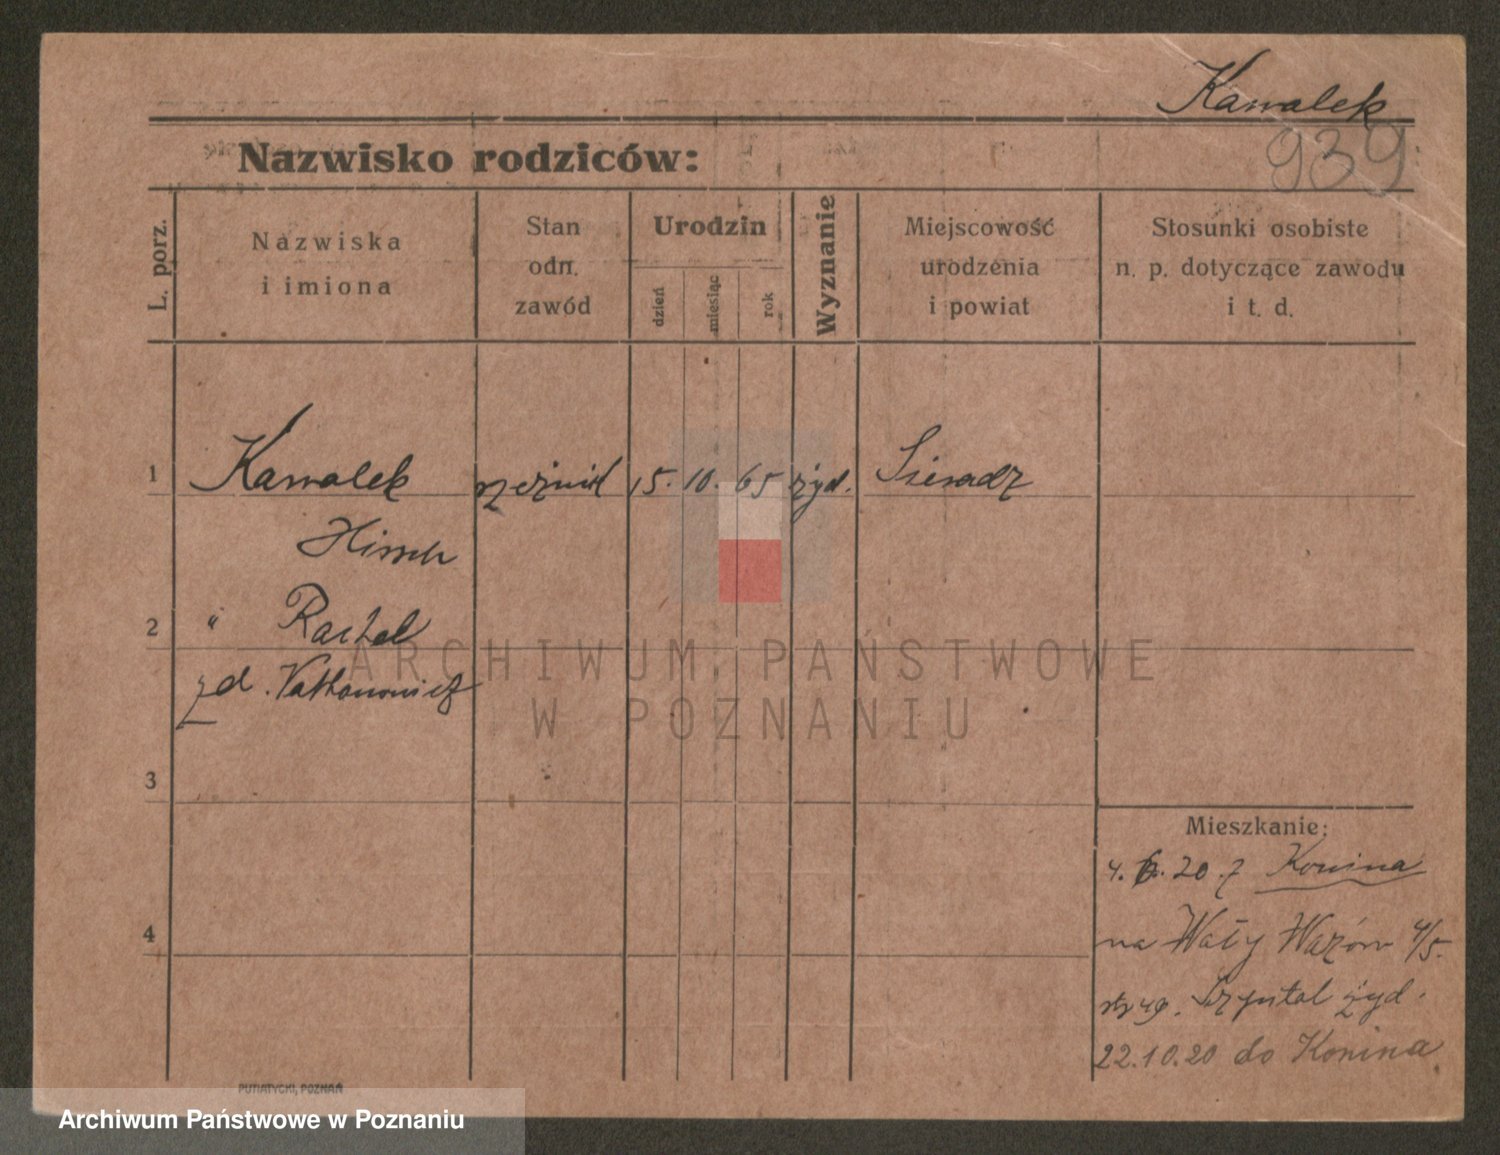 Kawalek
939
Nazwisko rodziców:
L. porz.
Nazwiska
i imiona
Stan
odn.
zawód
Urodzin
dzień
miesiąc
rok
Wyznanie
Miejscowość
urodzenia
i powiat
Stosunki osobiste
n. p. dotyczące zawodu
i t. d.
1 Kawalek rzeźnik 15. 10. 65 żyd. Sieradz
Hirsch
2 " Rachel
zd. Nathanowicz
3
4
Mieszkanie:
4. 6. 20. z Konina
na Wały Wazów 4/5.
Szpital żyd.
22.10.20 do Konina
PUTIATYCKI, POZNAŃ
ARCHIWUM PAŃSTWOWE
W POZNANIU
Archiwum Państwowe w Poznaniu